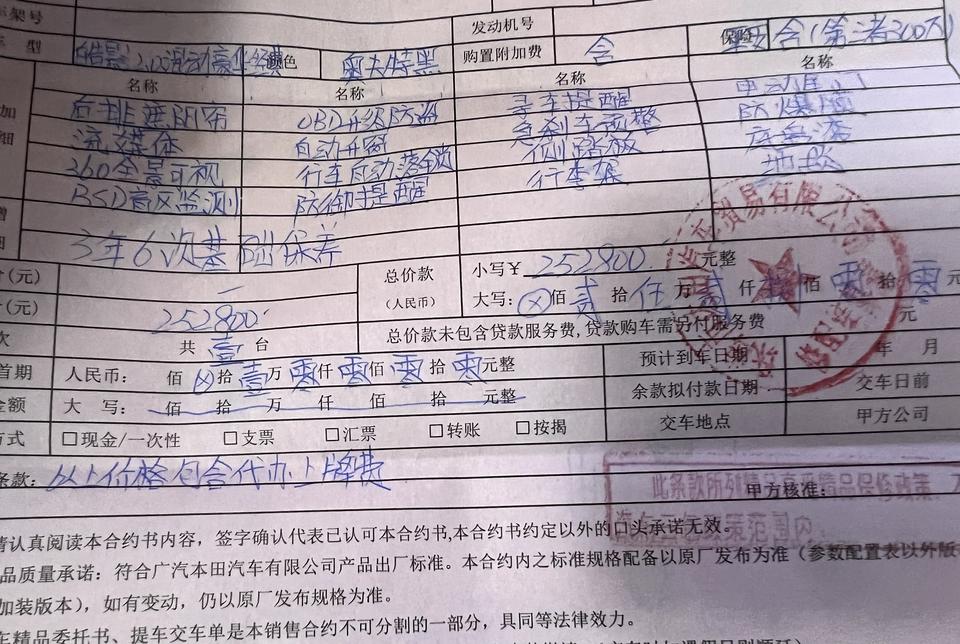 车架号 发动机号
车 型 皓影2.0L混动豪华 颜色 购置附加费 含 保险 含(第三者300万)
名称 名称 名称 名称
后排遮阳帘 OBD升级防盗 寻车提醒 电动尾门
流媒体 自动升窗 急刹车预警 防爆膜
360全景可视 行车自动落锁 侧踏板 底盘漆
BSD盲区监测 防御提醒 行李架 地胶
3年6次基础保养
计(元) 一 总价款 (人民币) 小写¥ 252800. 元整
计(元) 252800. 大写: ⊗佰 贰 拾 仟 万 贰 仟 捌 佰 零 拾 零 元
次 共 壹 台 总价款未包含贷款服务费,贷款购车需另付服务费 元
首期 人民币: 佰 ⊗ 拾 壹 万 零 仟 零 佰 零 拾 零 元整 预计到车日期 年 月
金额 大 写: 佰 拾 万 仟 佰 拾 元整 余款拟付款日期 交车日前
方式 □现金/一次性 □支票 □汇票 □转账 □按揭 交车地点 甲方公司
条款: 以上价格包含代办上牌费
甲方核准:
此条款所列精品享精品保修政策,不
政策范围内
请认真阅读本合约书内容,签字确认代表已认可本合约书,本合约书约定以外的口头承诺无效。
品质量承诺:符合广汽本田汽车有限公司产品出厂标准。本合约内之标准规格配备以原厂发布为准(参数配置表以外版
加装版本),如有变动,仍以原厂发布规格为准。
车精品委托书、提车交车单是本销售合约不可分割的一部分,具同等法律效力。
贸易有限公司